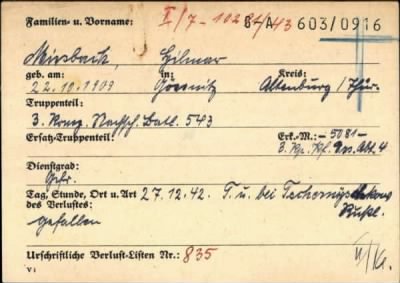 Familien- u. Vorname: I/7-10281/43 B-A 603/0916
Mirsbach, Hilmar
geb. am: in: Kreis:
22.10.1909 Goessnitz Altenburg/Thür.
Truppenteil:
3. Nachsch. Batl. 543
Ersatz-Truppenteil: Erk.-M.: -5081-
3. Kp. Kf. Ers. Abt. 4
Dienstgrad:
Gefr.
Tag, Stunde, Ort u. Art 27.12.42. T.u. bei
des Verlustes: Rußl.
gefallen
Urschriftliche Verlust-Listen Nr.: 835
V1